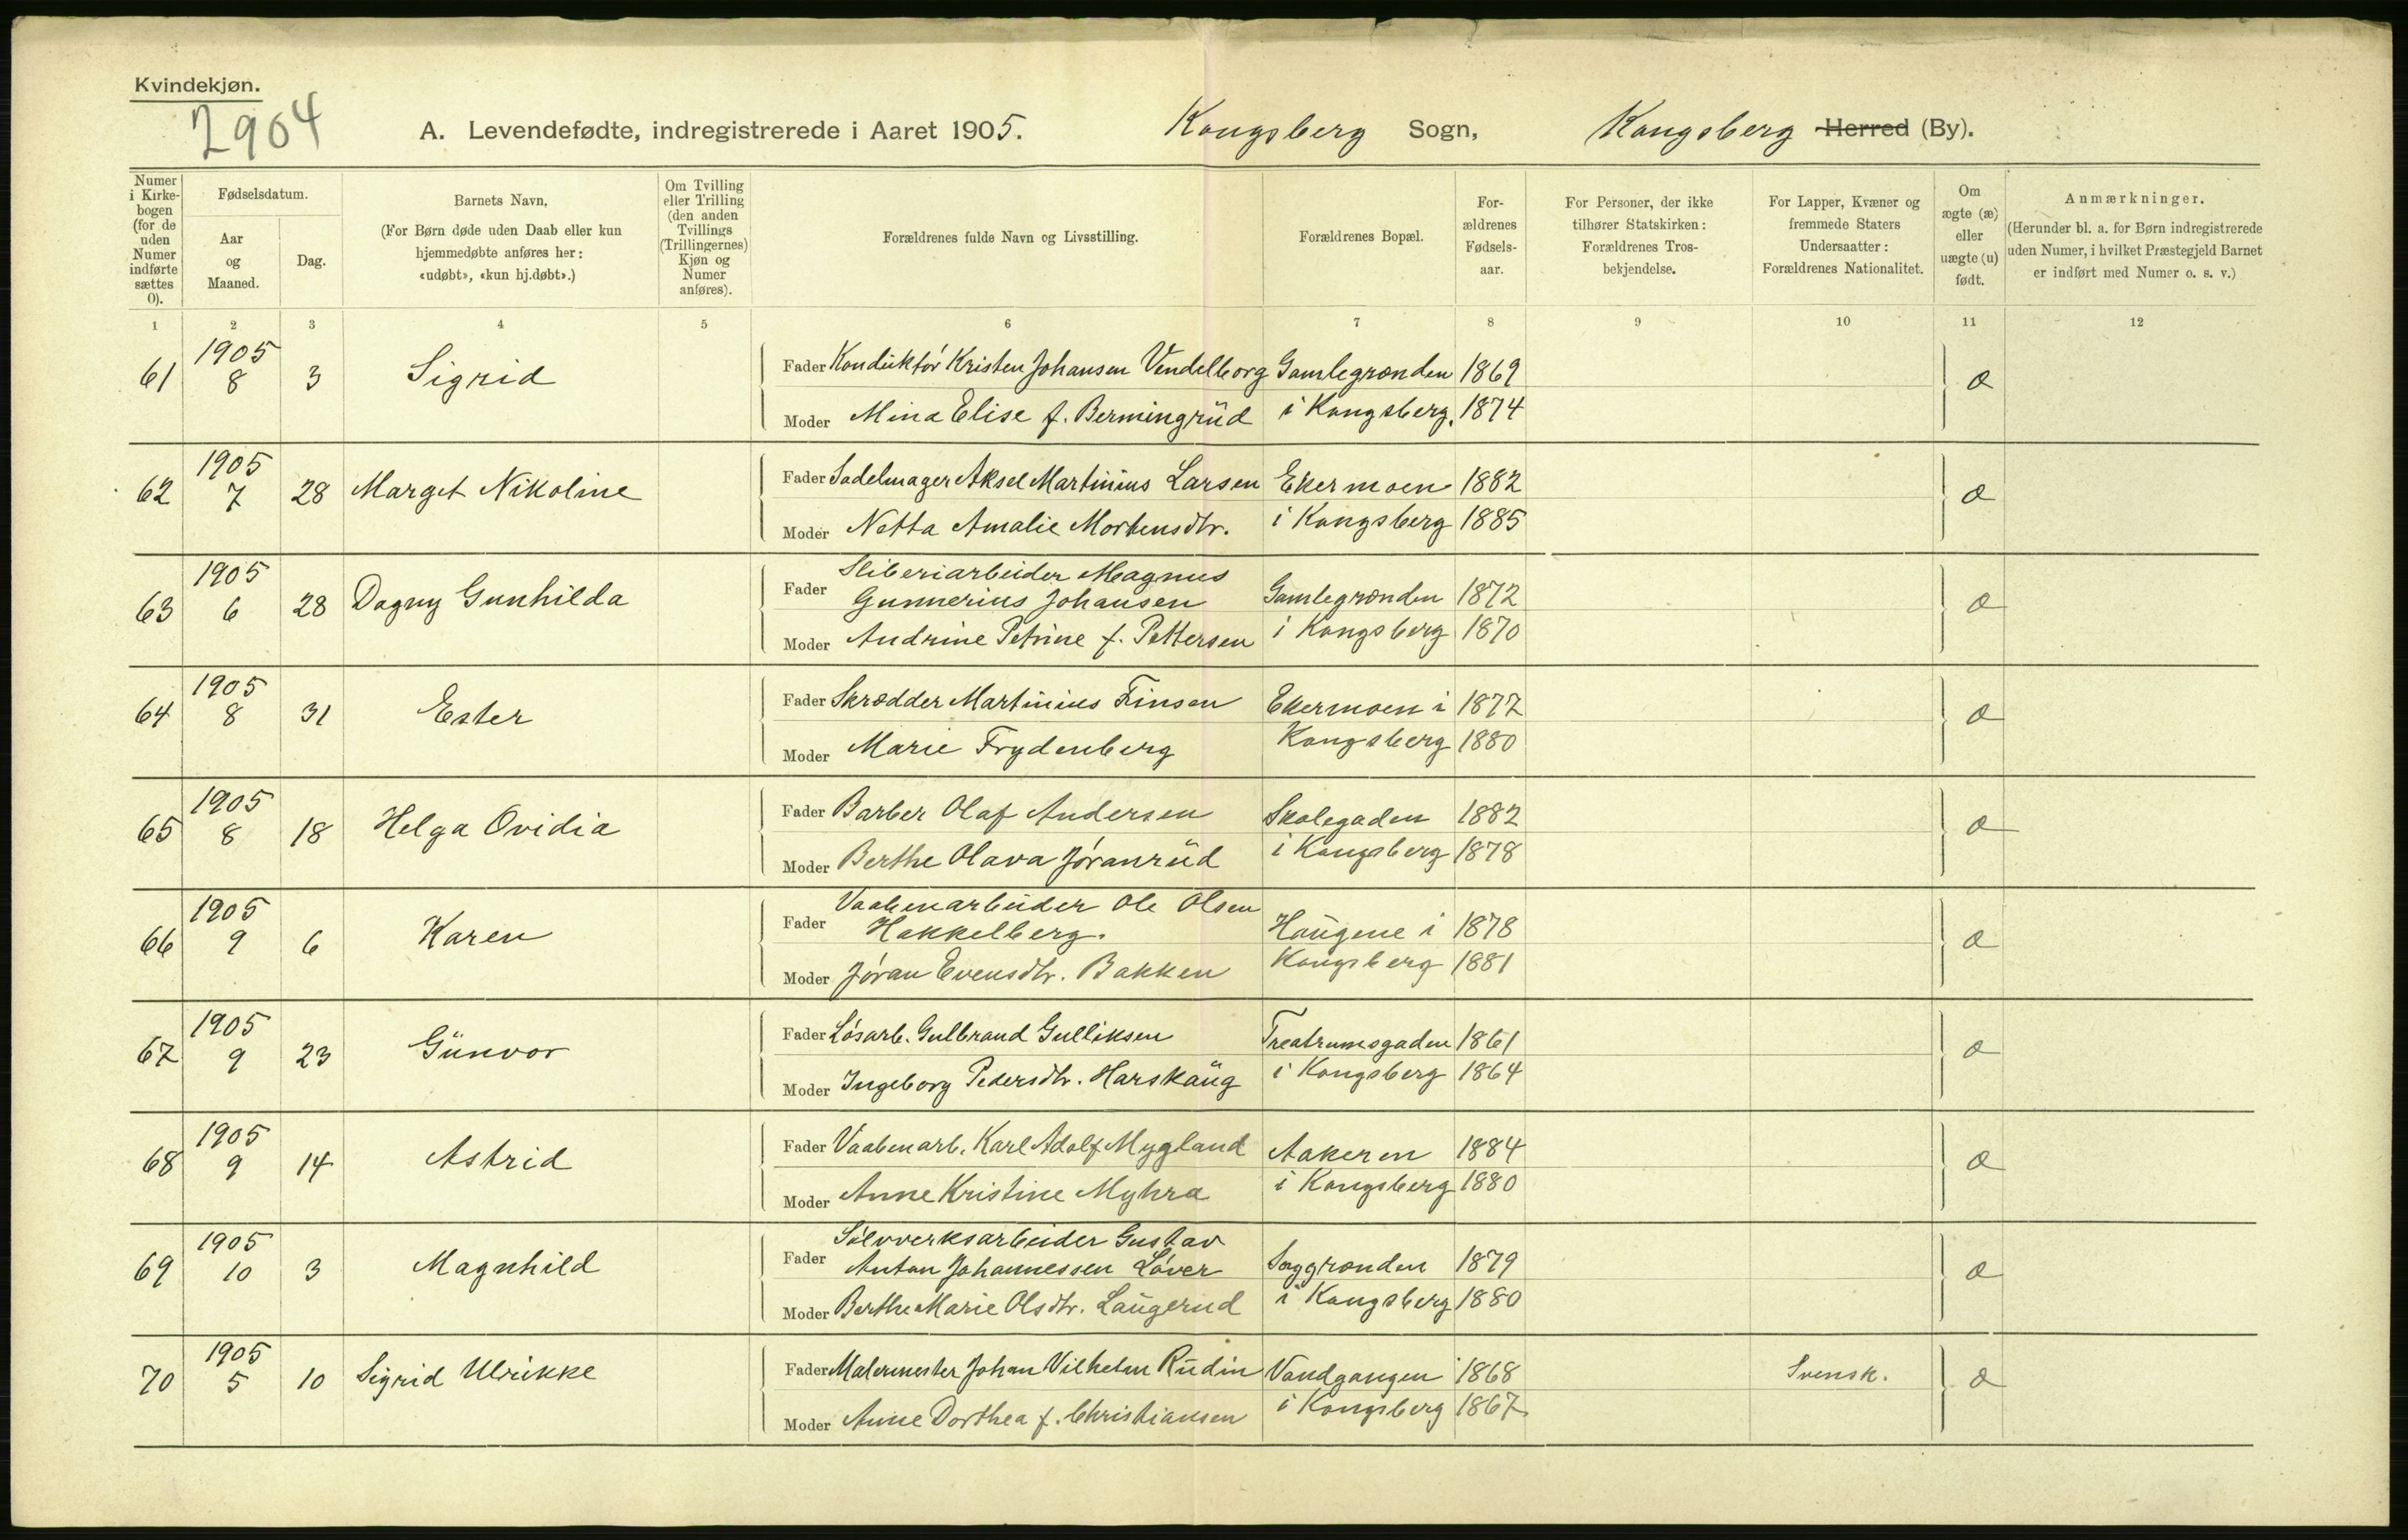 Kvindekjøn.
2904
A. Levendefødte, indregistrerede i Aaret 1905. Kongsberg Sogn, Kongsberg Herred (By).
Numer i Kirkebogen (for de uden Numer indførte sættes 0).
Fødselsdatum.
Aar og Maaned.
Dag.
Barnets Navn.
(For Børn døde uden Daab eller kun hjemmedøbte anføres her: «udøbt», «kun hj.døbt».)
Om Tvilling eller Trilling (den anden Tvillings (Trillingernes) Kjøn og Numer anføres).
Forældrenes fulde Navn og Livsstilling.
Forældrenes Bopæl.
Forældrenes Fødselsaar.
For Personer, der ikke tilhører Statskirken: Forældrenes Trosbekjendelse.
For Lapper, Kvæner og fremmede Staters Undersaatter: Forældrenes Nationalitet.
Om ægte (æ) eller uægte (u) født.
Anmærkninger.
(Herunder bl. a. for Børn indregistrerede uden Numer, i hvilket Præstegjeld Barnet er indført med Numer o. s. v.)
1 2 3 4 5 6 7 8 9 10 11 12
61 1905 8 3 Sigrid Fader Konduktør Kristen Johansen Vendelborg Gamlegrænden 1869 æ
Moder Mina Elise f. Bermingrud i Kongsberg. 1874
62 1905 7 28 Marget Nikoline Fader Sadelmager Aksel Martinius Larsen Ekermoen 1882 æ
Moder Netta Amalie Mortensdtr. i Kongsberg 1885
63 1905 6 28 Dagny Gunhilda Fader Sliberiarbeider Magnus
Gunnerius Johansen Gamlegrænden 1872 æ
Moder Andrine Petrine f. Pettersen i Kongsberg 1870
64 1905 8 31 Ester Fader Skrædder Martinius Finsen Ekermoen i 1877 æ
Moder Marie Frydenberg Kongsberg 1880
65 1905 8 18 Helga Ovidia Fader Barber Olaf Andersen Skolegaden 1882 æ
Moder Berthe Olava Jøranrud i Kongsberg 1878
66 1905 9 6 Karen Fader Vaabenarbeider Ole Olsen
Hakkelberg. Haugene i 1878 æ
Moder Jøran Evensdtr. Bakken Kongsberg 1881
67 1905 9 23 Gunvor Fader Løsarb. Gulbrand Gulliksen Treatrumsgaden 1861 æ
Moder Ingeborg Pedersdtr. Harskaug i Kongsberg 1864
68 1905 9 14 Astrid Fader Vaabenarb. Karl Adolf Mygland Aakeren 1884 æ
Moder Anne Kristine Myhra i Kongsberg 1880
69 1905 10 3 Magnhild Fader Sølvverksarbeider Gustav
Anton Johannessen Løver Saggrænden 1879 æ
Moder Berthe Marie Olsdtr. Laugerud i Kongsberg 1880
70 1905 5 10 Sigrid Ulrikke Fader Malermester Johan Vilhelm Rudin Vandgangen 1868 Svensk. æ
Moder Anne Dorthea f. Christiansen i Kongsberg 1867